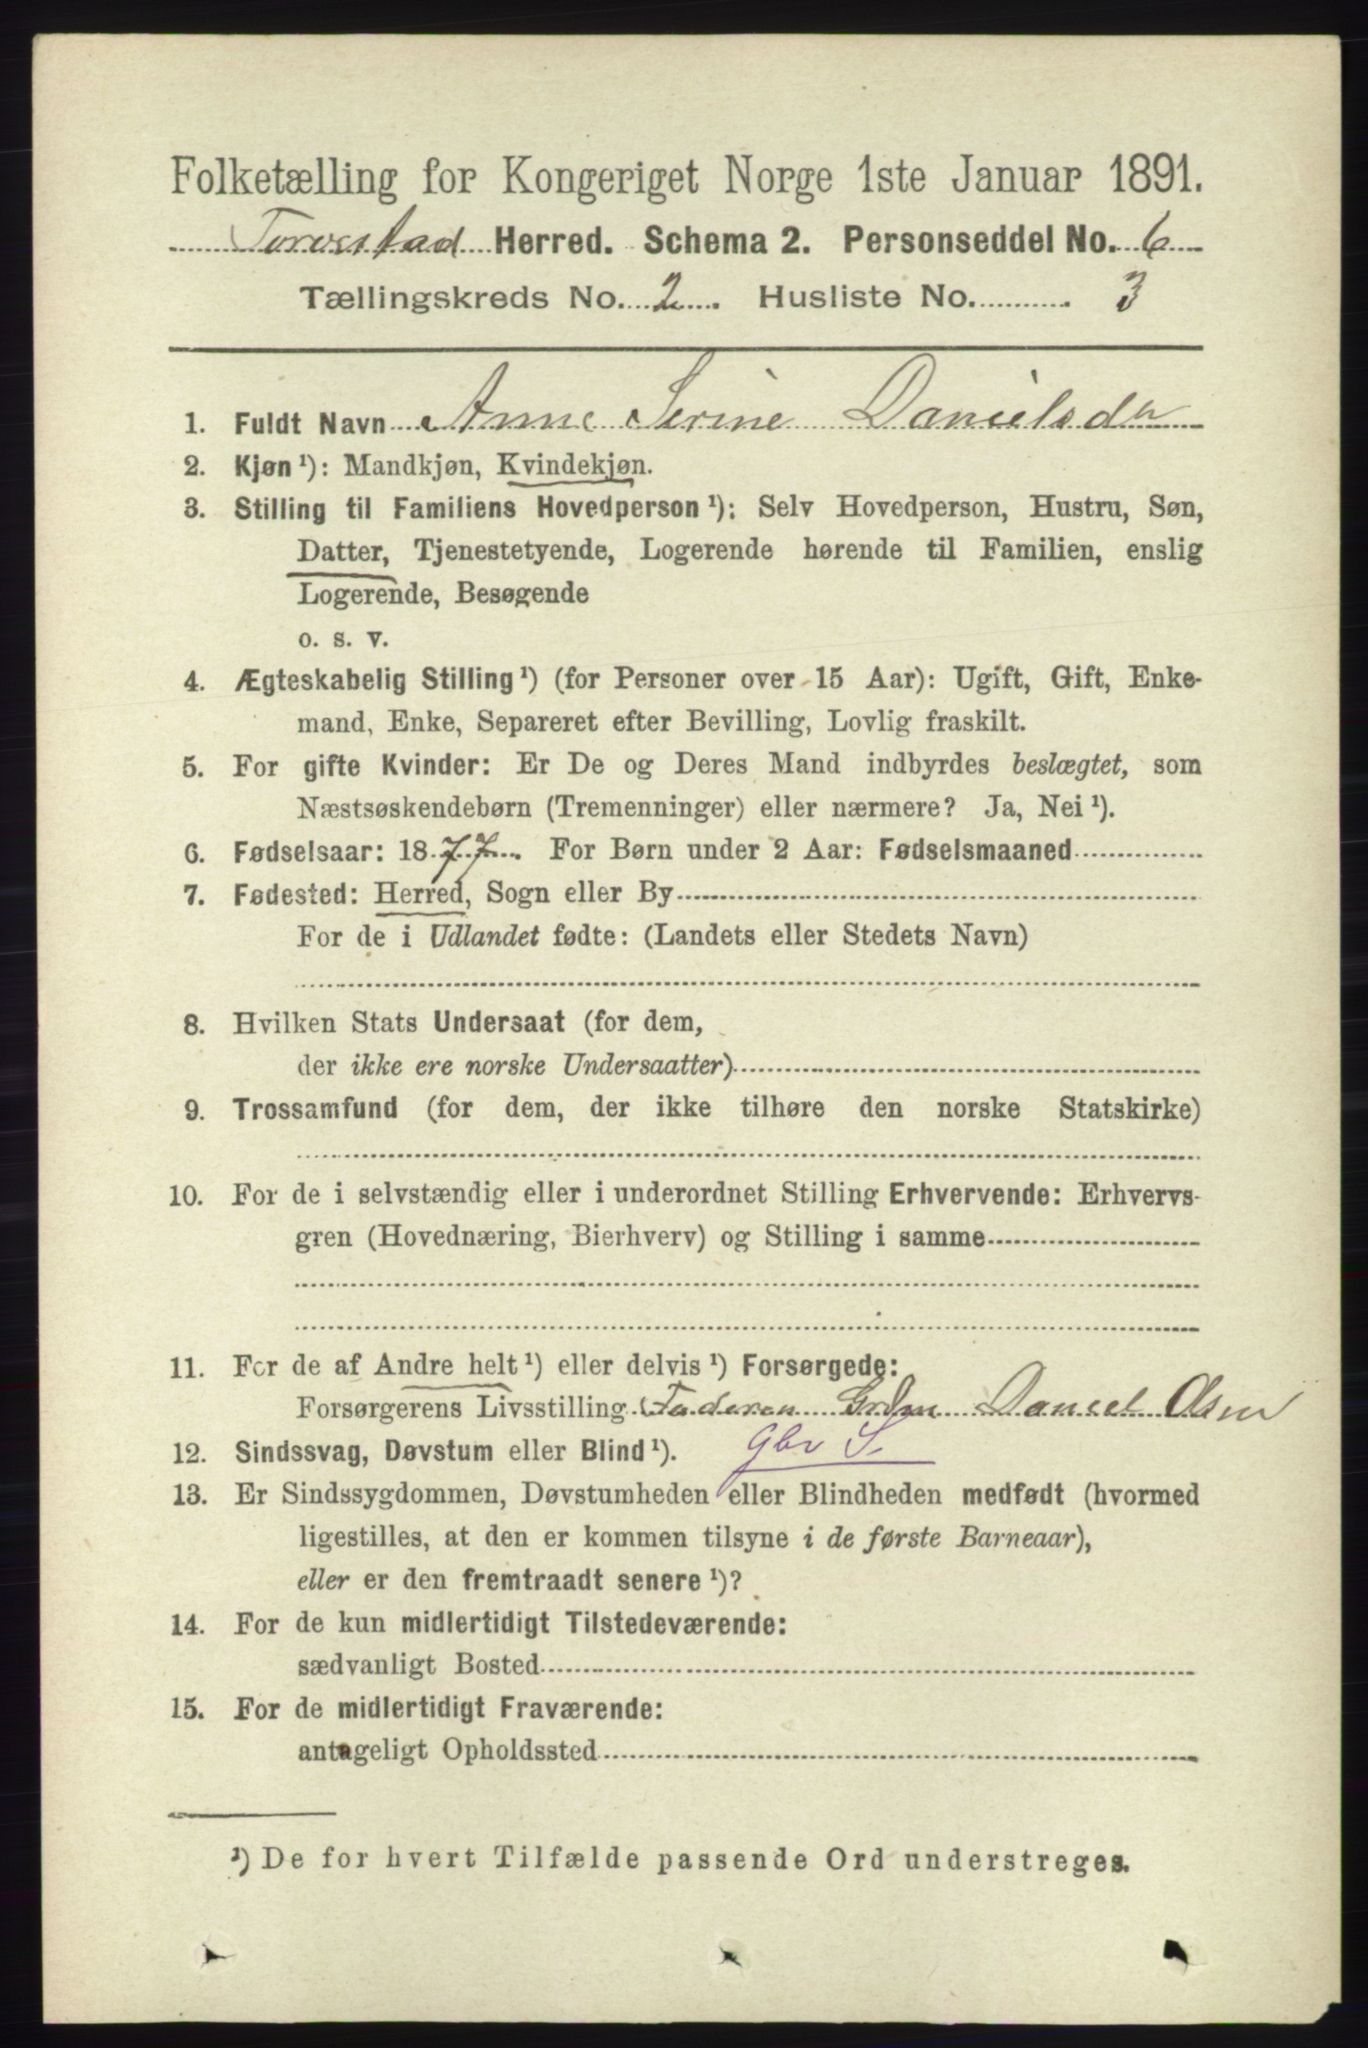 Folketælling for Kongeriget Norge 1ste Januar 1891.
Torvestad Herred. Schema 2. Personseddel No. 6
Tællingskreds No. 2. Husliste No. 3
1. Fuldt Navn Anne Serine Danielsdr
2. Kjøn ¹): Mandkjøn, Kvindekjøn.
3. Stilling til Familiens Hovedperson ¹): Selv Hovedperson, Hustru, Søn,
Datter, Tjenestetyende, Logerende hørende til Familien, enslig
Logerende, Besøgende
o. s. v.
4. Ægteskabelig Stilling ¹) (for Personer over 15 Aar): Ugift, Gift, Enke-
mand, Enke, Separeret efter Bevilling, Lovlig fraskilt.
5. For gifte Kvinder: Er De og Deres Mand indbyrdes beslægtet, som
Næstsøskendebørn (Tremenninger) eller nærmere? Ja, Nei ¹).
6. Fødselsaar: 1877. For Børn under 2 Aar: Fødselsmaaned
7. Fødested: Herred, Sogn eller By
For de i Udlandet fødte: (Landets eller Stedets Navn)
8. Hvilken Stats Undersaat (for dem,
der ikke ere norske Undersaatter)
9. Trossamfund (for dem, der ikke tilhøre den norske Statskirke)
10. For de i selvstændig eller i underordnet Stilling Erhvervende: Erhvervs-
gren (Hovednæring, Bierhverv) og Stilling i samme
11. For de af Andre helt ¹) eller delvis ¹) Forsørgede:
Forsørgerens Livsstilling Faderen Daniel Olsen
12. Sindssvag, Døvstum eller Blind ¹). Gbr S.
13. Er Sindssygdommen, Døvstumheden eller Blindheden medfødt (hvormed
ligestilles, at den er kommen tilsyne i de første Barneaar),
eller er den fremtraadt senere ¹)?
14. For de kun midlertidigt Tilstedeværende:
sædvanligt Bosted
15. For de midlertidigt Fraværende:
antageligt Opholdssted
¹) De for hvert Tilfælde passende Ord understreges.